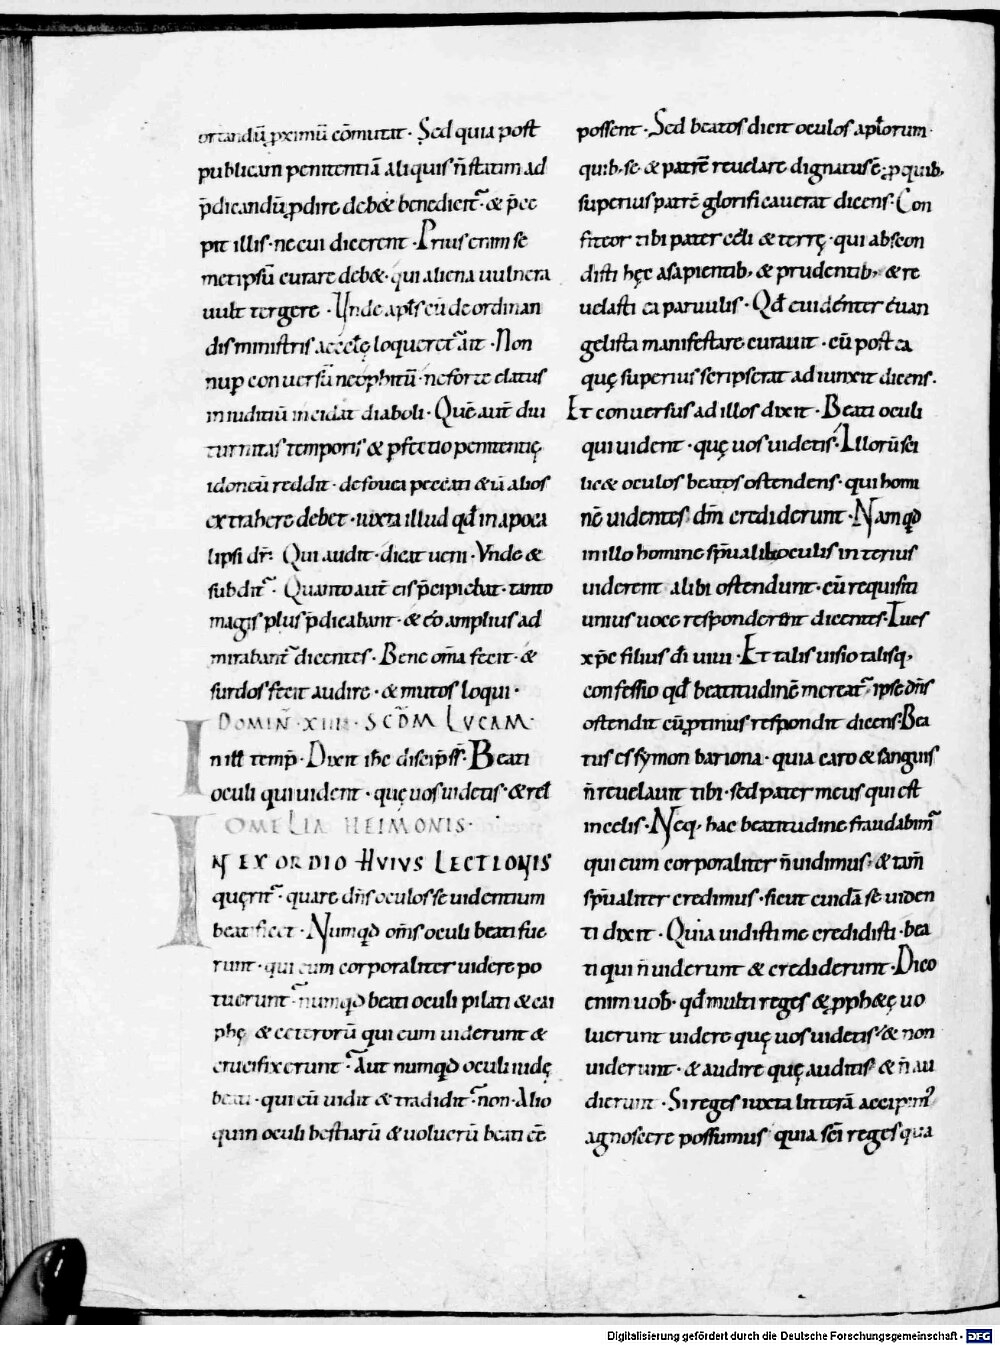 ortandū p̱ximū cōmutat · Sed quia post
publicam penitentiā aliquis n̄ statim ad
p̄dicandū p̱dire deb& benedicit᷑ · & p̄ce
pit illis · ne cui dicerent · Prius enim se
metipsū curare deb& · qui aliena uulnera
uult tergere · Unde apl̄s cū de ordinan
dis ministris æccl̄ę loqueret᷑ ait · Non
nup̱ conuersū neophitū · ne forte elatus
in iuditiū incidat diaboli · Quē aut̄ diu
turnitas temporis & p̱fectio penitentię
idoneū reddit · de fouea peccati &iā alios
extrahere debet · iuxta illud qd̄ in apoca
lipsi dr̄ · Qui audit · dicat ueni · Vnde &
subdit᷑ · Quanto aut̄ eis p̄cipiebat · tanto
magis plus p̄dicabant · & eo amplius ad
mirabant᷑ dicentes · Bene om̄a fecit · &
surdos fecit audire · & mutos loqui ·
DOMIN̄ · XIIII · SCD̄M LVCAM ·
IN ill̄ temp̄ · Dixit ih̄c discip̄ss̄ · Beati
oculi qui uident · quę uos uidetis · & rel̄
OMELIA HEIMONIS ·
IN EXORDIO HVIVS LECTIONIS
quęrit᷑ · quare dn̄s oculos se uidentium
beatificet · Numqd̄ om̄s oculi beati fue
runt · qui eum corporaliter uidere po
tuerunt · numqd̄ beati oculi pilati & cai
phę & ceterorū qui eum uiderunt &
crucifixerunt · Aut numqd̄ oculi iudę
beati · qui cū uidit & tradidit · non · Alio
quin oculi bestiarū & uolucrū beati eē
possent · Sed beatos dicit oculos apl̄orum
quib; se & patrē reuelare dignatus ē · p̱ quib;
superius patrē glorificauerat dicens · Con
fiteor tibi pater cęli & terrę · qui abscon
disti hęc a sapientib; & prudentib; & re
uelasti ea paruulis · Qd̄ euidenter euan
gelista manifestare curauit · cū post ea
quę superius scripserat adiunxit dicens ·
Et conuersus ad illos dixit · Beati oculi
qui uident · quę uos uidetis · Illorū sci
lic& oculos beatos ostendens · qui homi
nē uidentes dm̄ crediderunt · Nam qd̄
in illo homine sp̄ualib; oculis interius
uiderent alibi ostendunt · cū requisiti
unius uoce responderunt dicentes · Tu es
xp̄c filius di uiui · Et talis uisio talisq;
confessio qd̄ beatitudinē mereat᷑ ipse dn̄s
ostendit cū p̱tinus respondit dicens · Bea
tus es symon bariona · quia caro & sanguis
n̄ reuelauit tibi · sed pater meus qui est
in celis · Neq; hac beatitudine fraudabim᷑
qui eum corporaliter n̄ uidimus · & tam̄
sp̄ualiter credimus · sicut cuidā se uiden
ti dixit · Quia uidisti me credidisti · bea
ti qui n̄ uiderunt & crediderunt · Dico
enim uob̄ · qd̄ multi reges & p̱ph&ę uo
luerunt uidere quę uos uidetis · & non
uiderunt · & audire quę auditis · & n̄ au
dierunt · Si reges iuxta litterā accipim᷒
agnoscere possumus quia sc̄i reges qua
Digitalisierung gefördert durch die Deutsche Forschungsgemeinschaft - DFG